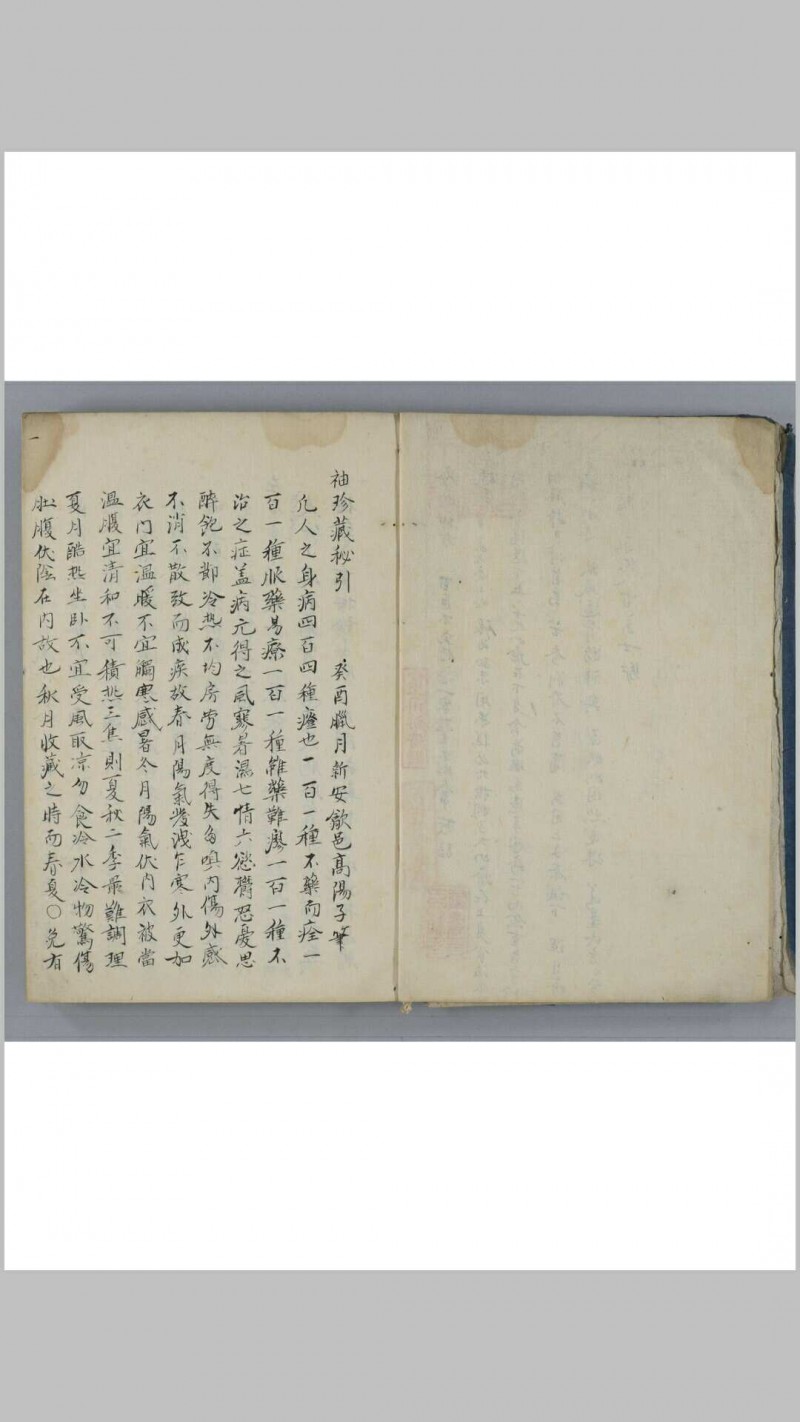 袖珍藏秘引 癸酉臘月新安歙邑高陽子筆
凡人之身病四百四種瘥也一百一種不藥而痊一
百一種服藥易療一百一種雖藥難療一百一種不
治之症盖病亢得之風寒暑濕七情六慾 怒憂思
醉飽不節冷热不均房劳無度得失多嗔内傷外感
不消不散致而成疾故春月陽氣發洩乍寒外更加
衣门宜溫暖不宜觸寒感暑冬月陽氣伏内衣被當
溫腹宜清和不可積热三焦則夏秋二季最難調理
夏月酷热坐卧不宜受風取凉勿食冷水冷物驚傷
肚腹伏陰在内故也秋月收藏之時而春夏〇免有